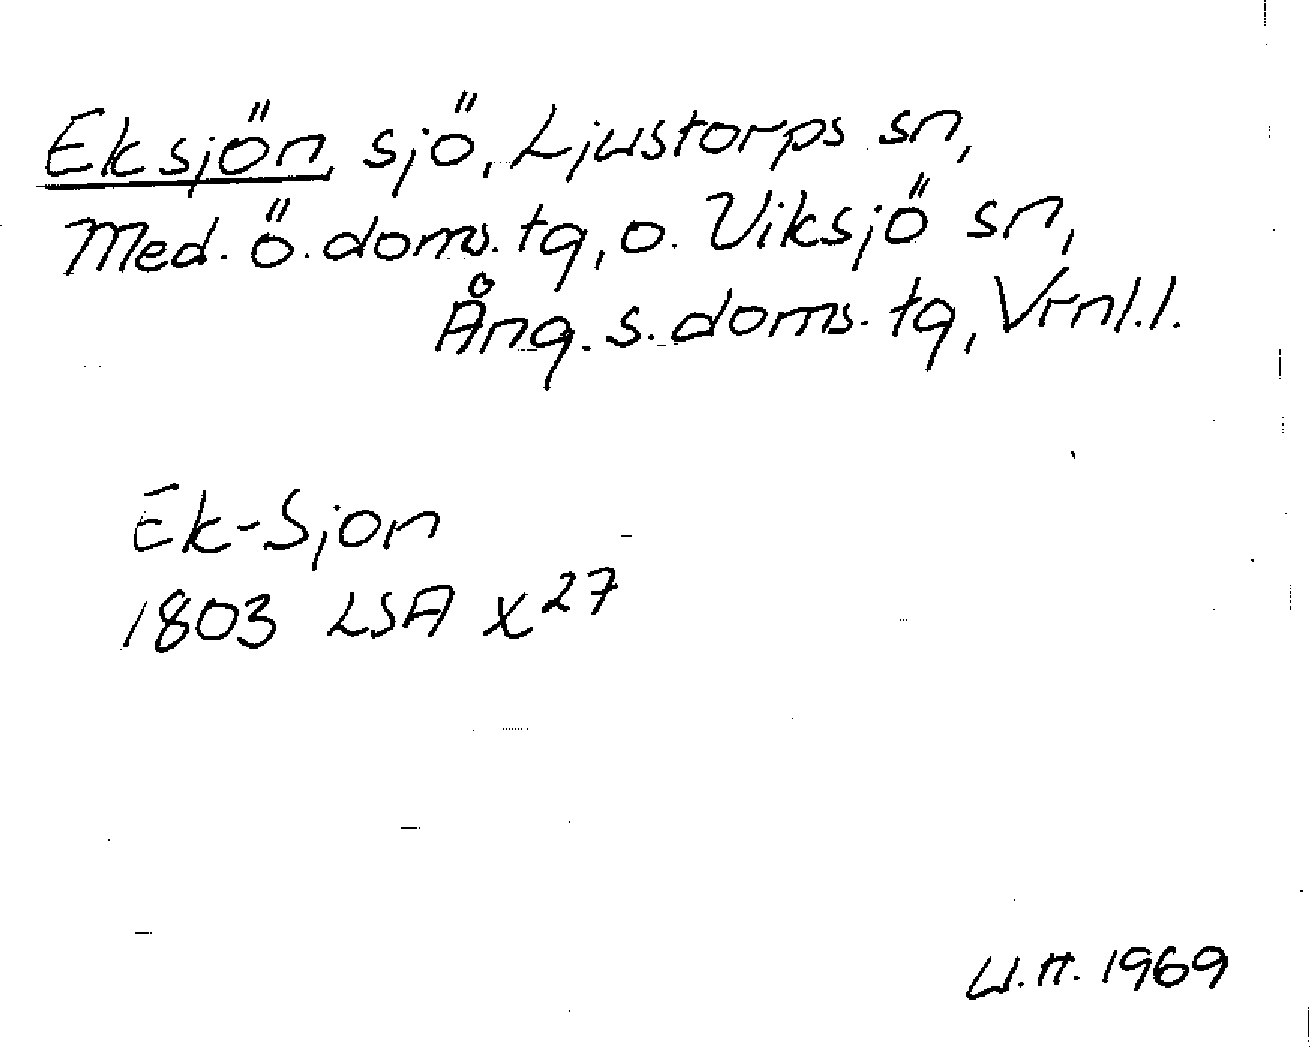 Eksjön, sjö, Ljustorps sn,
Med. ö. doms. tg, o. Viksjö sn,
Ång. s. doms. tg, Vrnl. l.
Ek-Sjon
1803 LSA X27
U.H. 1969